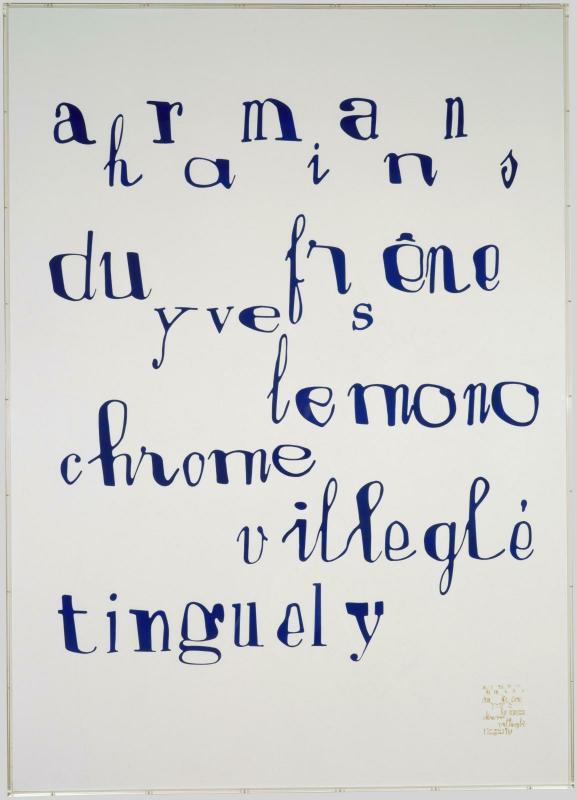 arman
hains
du frêne
yves
le mono
chrome
villeglé
tinguely